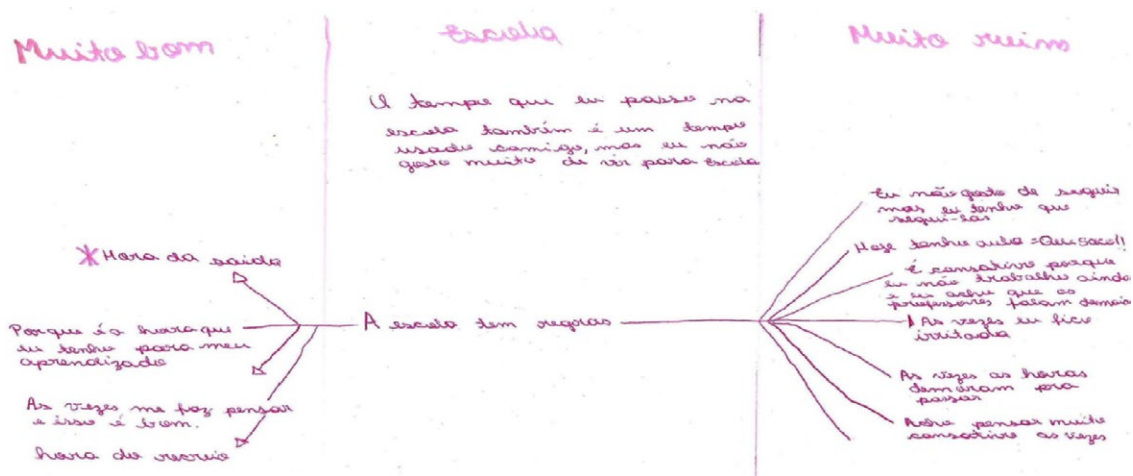 Muito bom
Escola
Muito ruim
O tempo que eu passo na
escola também é um tempo
usado comigo, mas eu não
gosto muito de vir para escola
* Hora da saída
Porque é a hora que
eu tenho para meu
aprendizado
As vezes me faz pensar
e isso é bom.
hora do recreio
A escola tem regras
Eu não gosto de seguir
mas eu tenho que
segui-las
Hoje tenho aula = Que saco!!
É cansativo porque
eu não trabalho ainda
e eu acho que os
professores falam demais
As vezes eu fico
irritada
As vezes as horas
demoram pra
passar
Acho pensar muito
cansativo as vezes